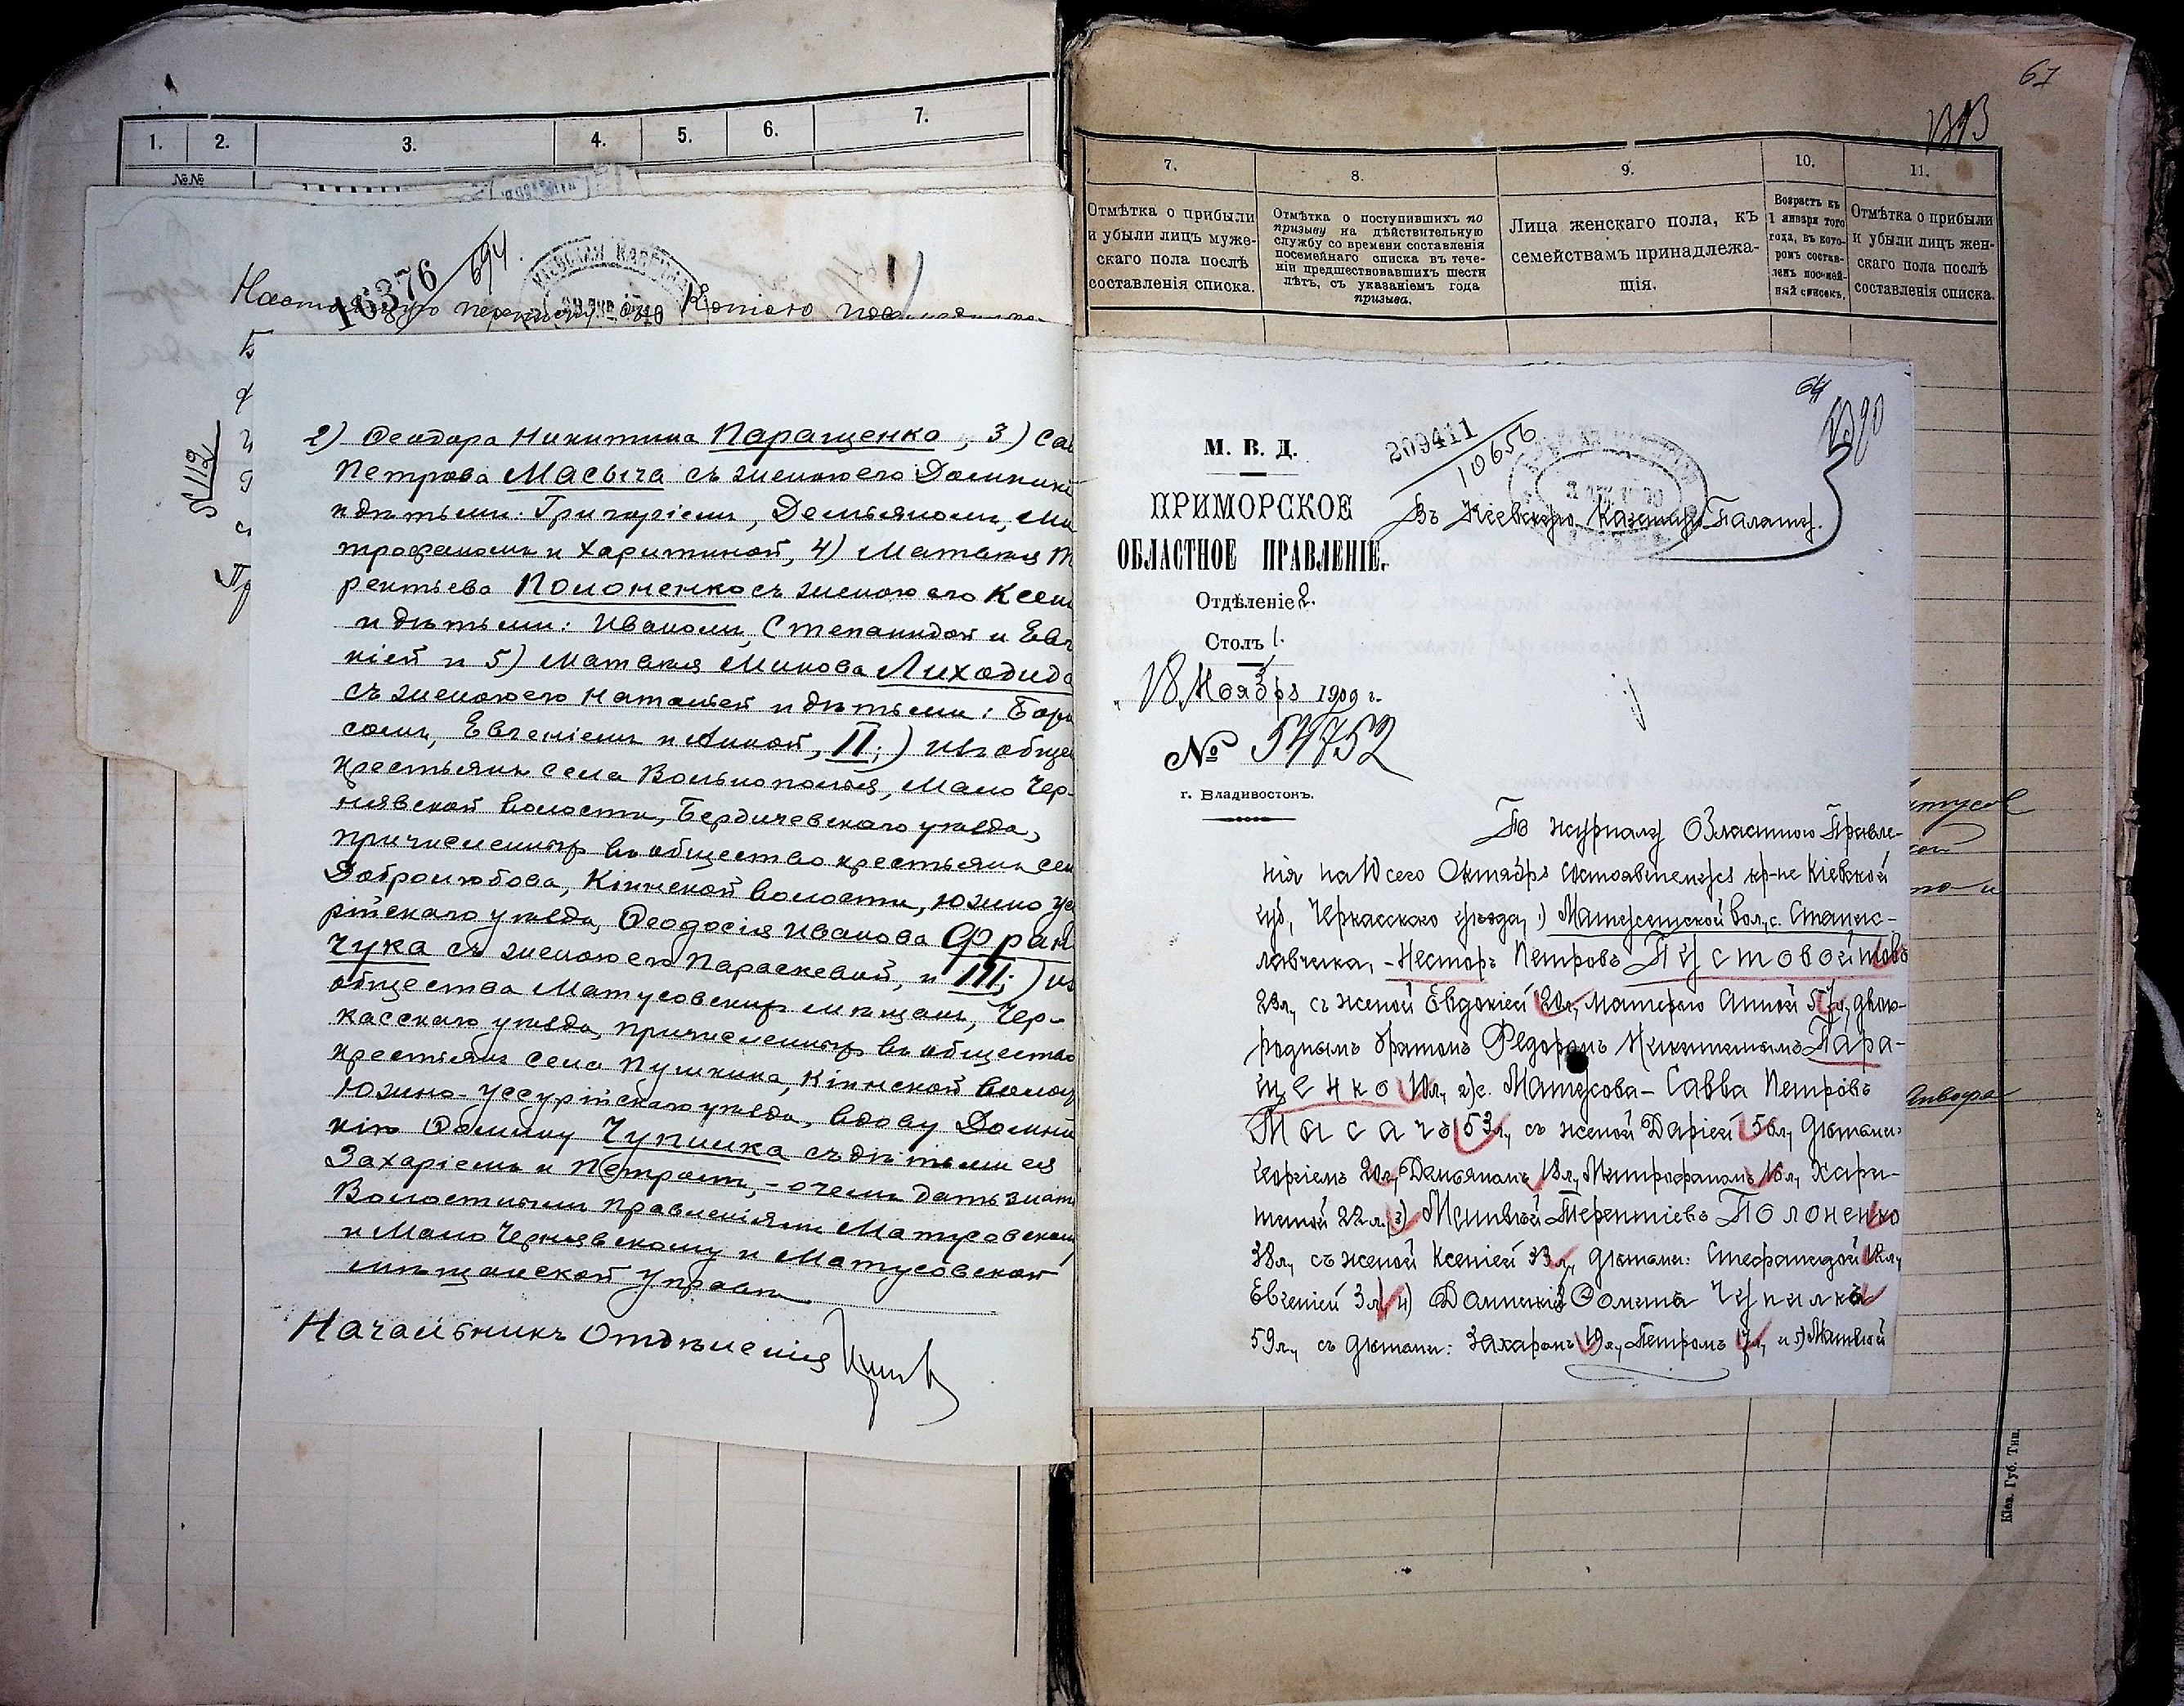 1.
2.
3.
4.
5.
6.
7.
№№
16376
694.
Настоящую переписку Копіею
№ 112
2) Ѳеодора Никитина Паращенко, 3) Сав
Петрова Масыча съ женою его Доминик
и дѣтьми: Григоріемъ, Демьяномъ, Ми
трофаномъ и Харитиной, 4) Матвѣя Т
рентьева Полоненко съ женою его Ксен
и дѣтьми: Иваномъ, Степанидой и Евг
ніей и 5) Матвѣя Минова Лиходида
съ женою его Натальей и дѣтьми: Бори
сомъ, Евгеніемъ и Анной, II;) изъ общес
крестьянъ села Вольнополья, Мало Чер-
нявской волости, Бердичевскаго уѣзда,
причисленныхъ въ общество крестьянъ сел
Добролюбова, Кіинской волости, Южно Ус
рійскаго уѣзда, Ѳеодосія Иванова Фран
чука съ женою его Параскевой, и III;) из
общества Матусовскихъ мѣщанъ, Чер-
касскаго уѣзда, причисленныхъ въ общество
крестьянъ села Пушкина, Кіинской волос
Южно-Уссурійскаго уѣзда, вдову Домни
кію Ѳомину Чупилка съ дѣтьми ея
Захаріемъ и Петромъ, - о чемъ дать знать
Волостнымъ Правленіямъ Матусовскому
и Мало Чернявскому и Матусовской
мѣщанской Управѣ
Начальникъ Отдѣленія
61
7.
8.
9.
10.
11.
Отмѣтка о прибыли
и убыли лицъ муже-
скаго пола послѣ
составленія списка.
Отмѣтка о поступившихъ по
призыву на дѣйствительную
службу со времени составленія
посемейнаго списка въ тече-
ніи предшествовавшихъ шести
лѣтъ, съ указаніемъ года
призыва.
Лица женскаго пола, къ
семействамъ принадлежа-
щія.
Возрастъ къ
1 января того
года, въ кото-
ромъ состав-
ленъ посемей-
ный списокъ.
Отмѣтка о прибыли
и убыли лицъ жен-
скаго пола послѣ
составленія списка.
64
М. В. Д.
ПРИМОРСКОЕ
ОБЛАСТНОЕ ПРАВЛЕНІЕ.
Отдѣленіе 2.
Столъ 1.
18 Ноября 1909 г.
№ 54752
г. Владивостокъ.
209411
10656
Въ Кіевскую Казенную Палату.
По журналу Областного Правле-
нія на 10 сего Октября состоявшемуся кр-не Кіевской
губ, Черкасскаго уѣзда, 1) Матусовской вол, с. Станис-
лавчика, - Несторъ Петровъ Пустовойтовъ
23л, съ женой Евдокіей 20л, матерью Анной 57л, двою-
роднымъ братомъ Федоромъ Никитинымъ Пара-
щенко 10л, 2) с. Матусова - Савва Петровъ
Масачъ 53л, съ женой Даріей 50л, дѣтьми:
Георгіемъ 20л, Демьяномъ 18л, Митрофаномъ 16л, Хари-
тиной 22л. 3) Матвѣй Терентіевъ Полоненко
38л, съ женой Ксеніей 33л, дѣтьми: Стефанидой 12л,
Евгеніей 3л, 4) Доминикія Ѳомина Чупилка
59л, съ дѣтьми: Захаромъ 19л, Петромъ 17л, и 5) Матвѣй
Кіев. Губ. Тип.